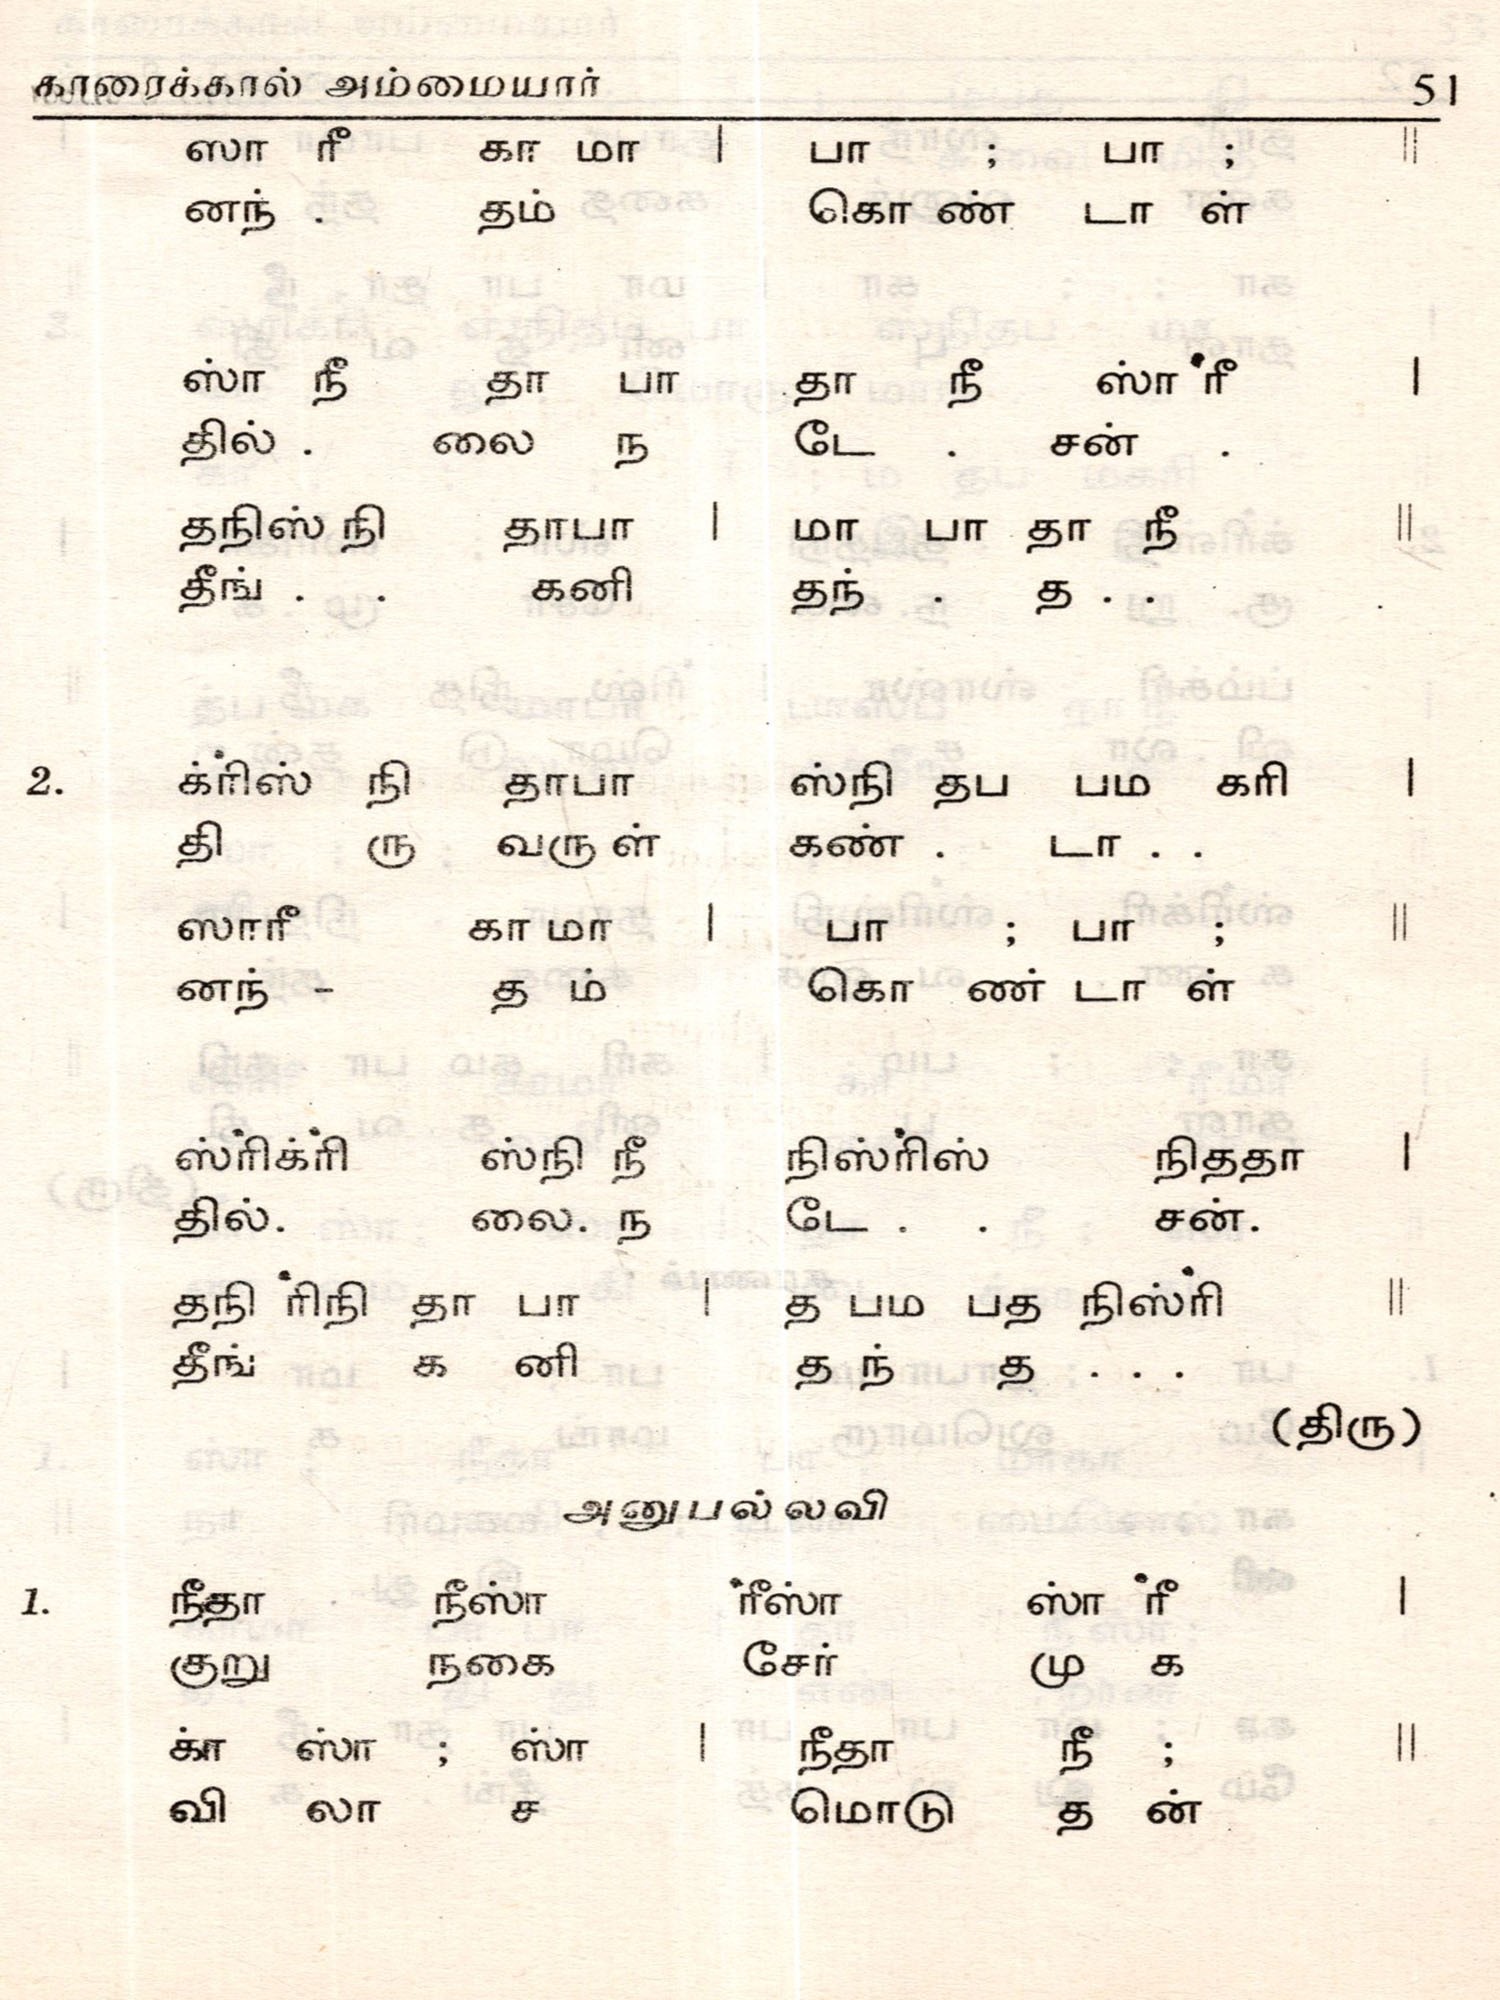 காரைக்கால் அம்மையார் 51
ஸா ரீ கா மா | பா ; பா ; ||
னந் . தம் கொ ண் டா ள்
ஸ்ா நீ தா பா தா நீ ஸ்ா ்ரீ |
தில் . லை ந டே . சன் .
தநிஸ் நி தாபா | மா பா தா நீ ||
தீங் . . கனி தந் . த . .
2. க்ா்ிஸ் நி தாபா ஸ்நி தப பம கரி |
தி ரு வருள் கண் . டா . .
ஸாரீ கா மா | பா ; பா ; ||
னந் - த ம் கொ ண் டா ள்
ஸ்ா்ிக்ா்ி ஸ்நி நீ நிஸ்ா்ிஸ் நிததா |
தில். லை. ந டே . . சன்.
தநி ா்ிநி தா பா | த பம பத நிஸ்ா்ி ||
தீங் க னி த ந் த . . .
(திரு)
அனுபல்லவி
1. நீதா நீஸ்ா ்ரீஸ்ா ஸ்ா ்ரீ |
குறு நகை சேர் மு க
க்ா ஸ்ா ; ஸ்ா | நீதா நீ ; ||
வி லா ச மொடு த ன்